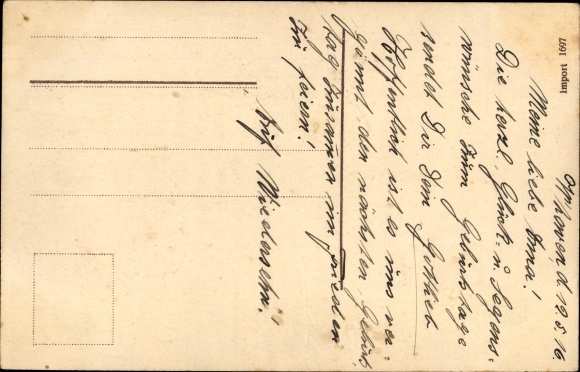 Import 1697
d. 19.5.16.
Meine liebe Erna!
Die herzl. Glück- u. Segens-
wünsche zum Geburtstage
sendet Dir Dein Gottlieb
Hoffentlich ist es uns ver-
gönnt den nächsten Geburts-
tag zusammen im Frieden
zu feiern!
Auf Wiedersehn!